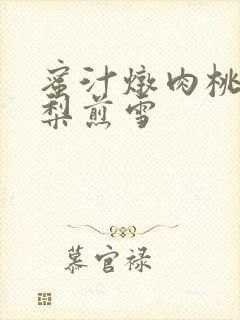 蜜汁燉肉桃
梨煎雪
慕官禄